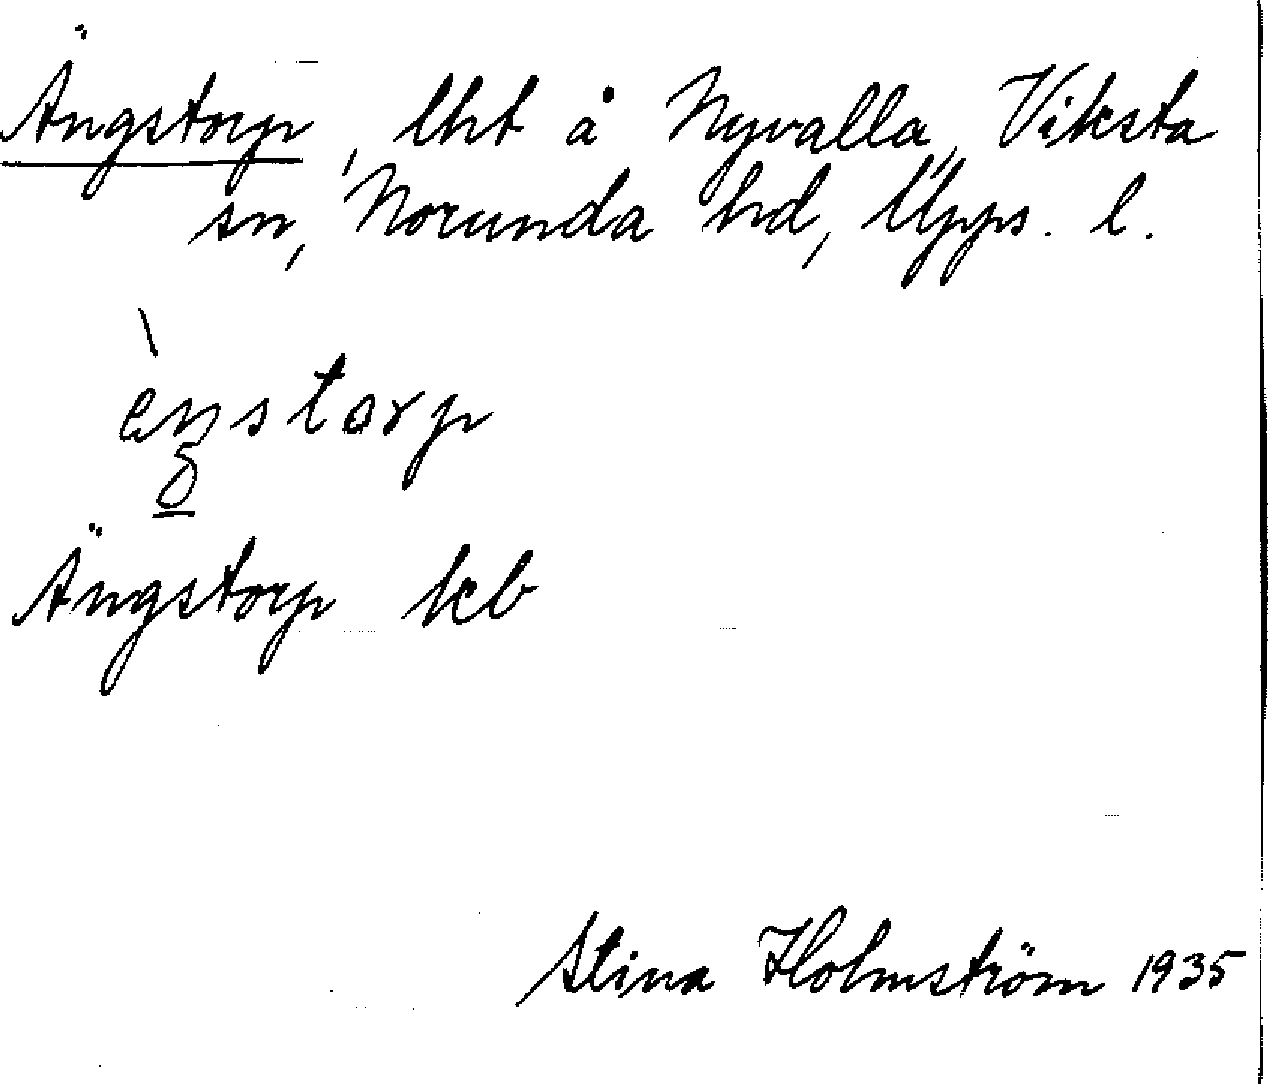 Ängstorp, lht å Nyvalla, Viksta
sn, Norunda hd, Upps. l.
ὲŋstorp
Ängstorp kb
Stina Holmström 1935